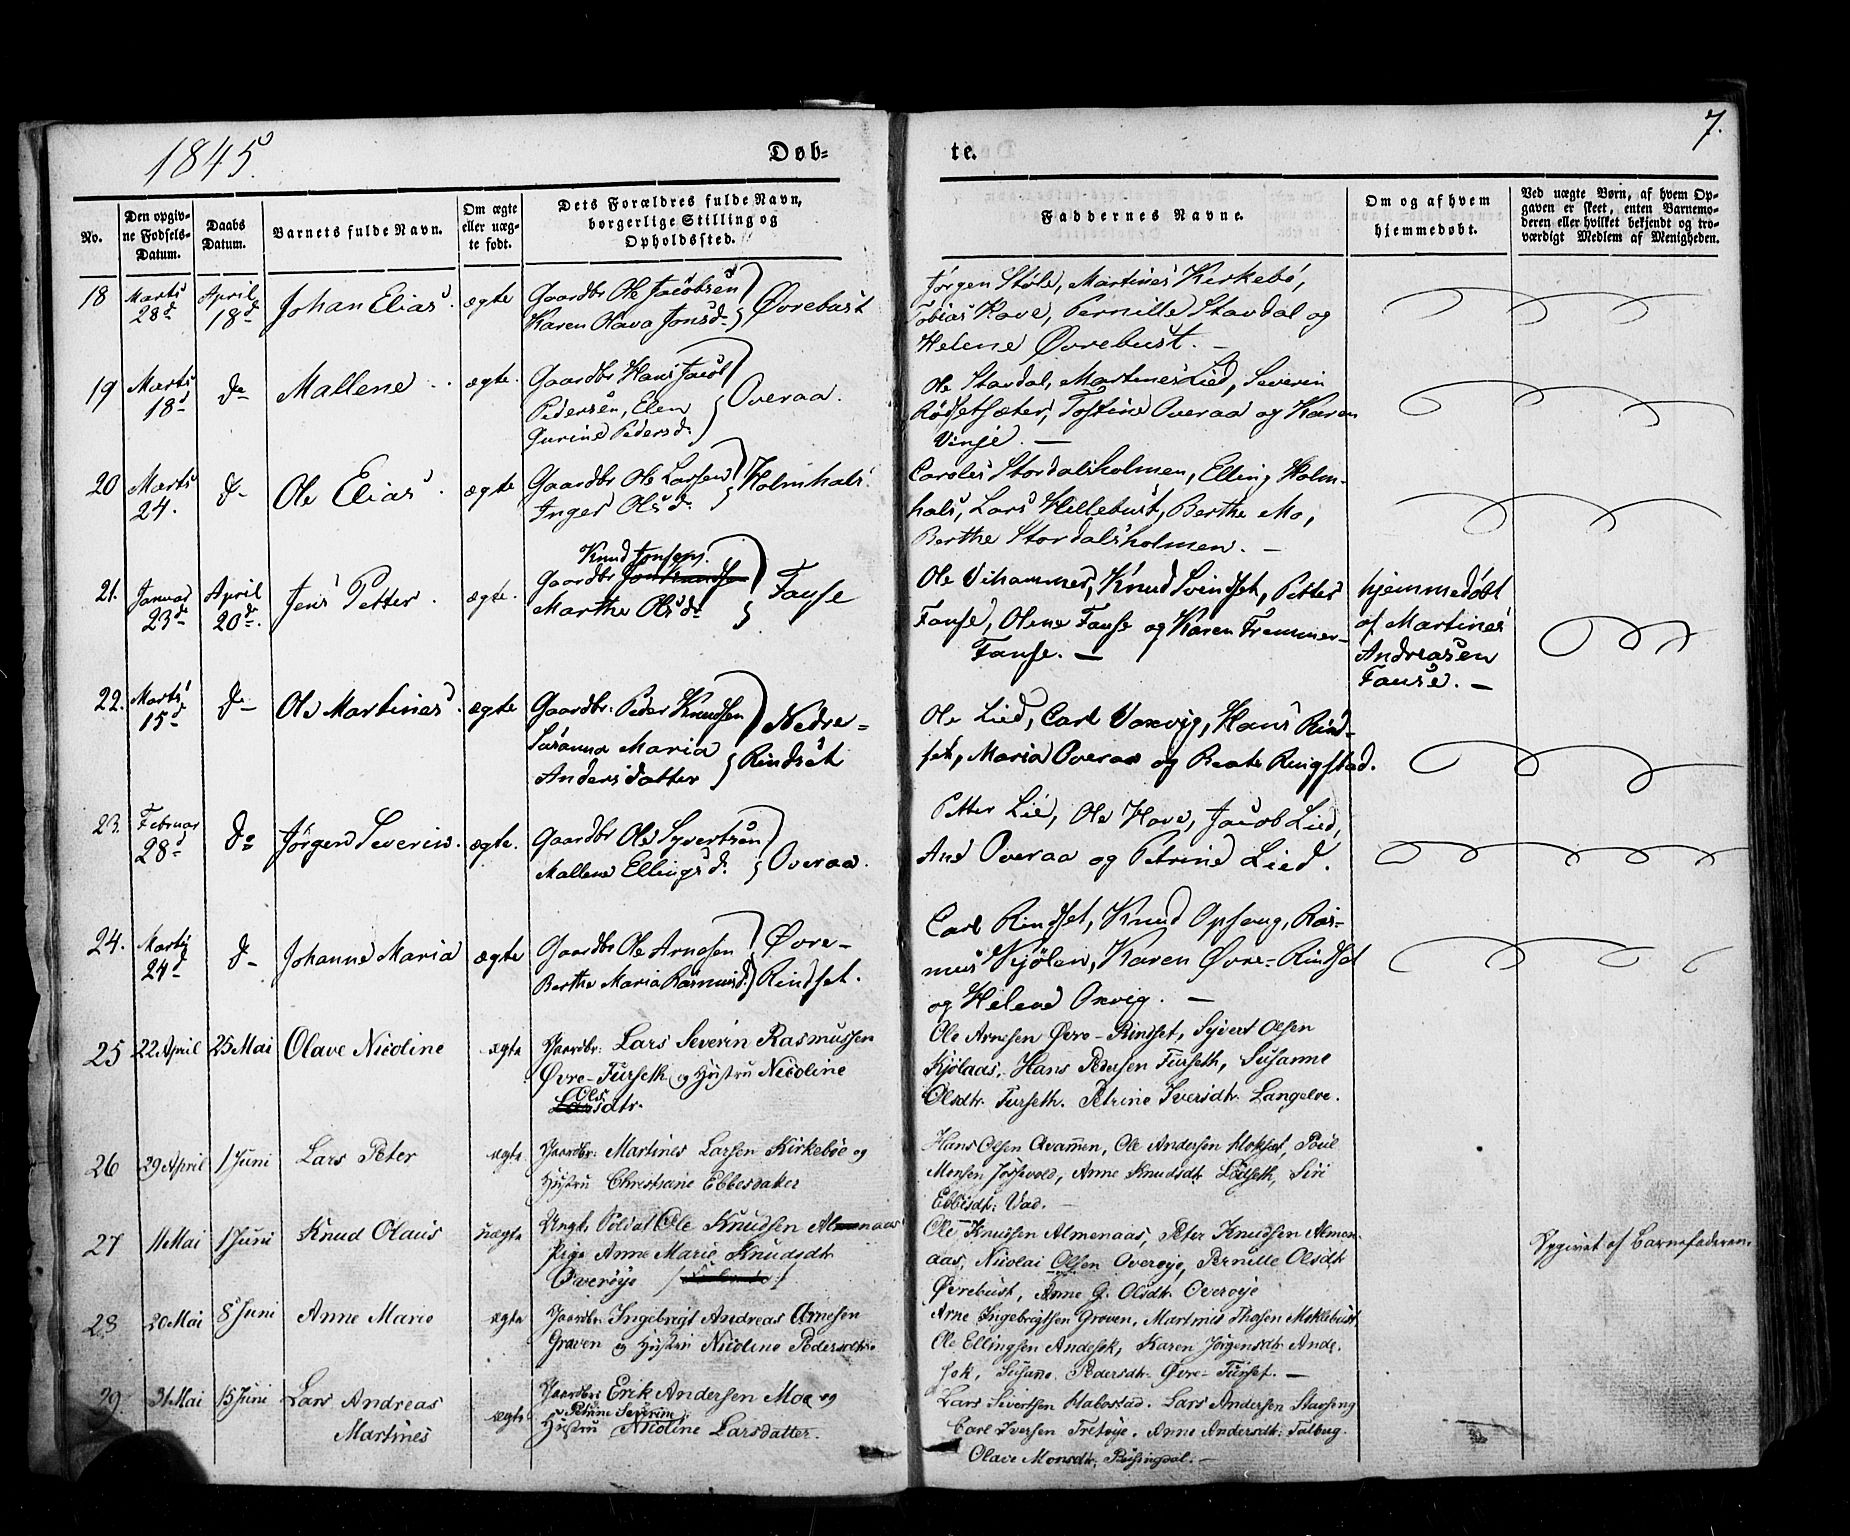 1845.
Døb-
te.
7.
No.
Den opgiv-
ne Fødsels-
Datum.
Daabs
Datum.
Barnets fulde Navn.
Om ægte
eller uæg-
te født.
Dets Forældres fulde Navn,
borgerlige Stilling og
Opholdssted.
Faddernes Navne.
Om og af hvem
hjemmedøbt.
Ved uægte Børn, af hvem Op-
gaven er skeet, enten Barnemo-
deren eller hvilket bekjendt og tro-
værdigt Medlem af Menigheden.
18 Marts 28d April 18d Johan Elias. ægte
Gaardbr Ole Jacobsen
Karen Olava Jonsd. Øvrebust
Jørgen Støle, Martines Kirkebø,
Tobias Hove, Pernille Stavdal og
Helene Øvrebust. —
19 Marts 18d do Mallene ægte.
Gaardbr Hans Jacob
Pedersen, Elen
Gurine Pedersd. Overaa.
Ole Stavdal, Martines Lied, Severin
Rødsetsæter, Tostine Overaa og Karen
Vinje. —
20 Marts 24. do Ole Elias. ægte
Gaardbr Ole Larsen
Inger Olsd. Holmhals.
Caroles Stordalsholmen, Elling Holm-
hals, Lars Hillebust, Berthe Mo,
Berthe Stordalsholmen. —
21. Januar 23d April 20d. Jens Petter. ægte.
Knud Jonsen
Gaardbr Jon Knudsen
Marthe Olsd. Fause
Ole Vihammer, Knud Svindset, Petter
Fause, Olene Fause og Karen Fremmer-
Fause. —
hjemmedøbt
af Martines
Andreasen
Fause. —
22. Marts 15d do Ole Martines. ægte
Gaardbr. Peder Knudsen
Susanna Maria
Andersdatter Nedre-
Rindset
Ole Lied, Carl Vaxvig, Hans Rind-
set, Maria Overaa og Beate Ringstad.
23. Februar 28d do Jørgen Severin. ægte.
Gaardbr Ole Syvertsen
Mallene Ellingsd. Overaa.
Petter Lie, Ole Hove, Jacob Lied,
Ane Overaa og Petrine Lied.
24. Marts 24d do Johanne Maria ægte
Gaardbr Ole Arnesen
Berthe Maria Rasmusd. Øvre-
Rindset.
Carl Rindset, Knud Opsaug, Ras-
mus Kjølen, Karen Øvre-Rindset
og Helene Oxvig. —
25 22 April 25 Mai Olave Nicoline ægte
Gaardbr: Lars Severin Rasmussen
Øvre-Furseth og Hustru Nicoline
Ols
Larsdtr.
Ole Arnesen Øvre-Rindset, Syvert Olsen
Kjølaas, Hans Pedersen Furseth, Susanne
Olsdtr Furseth. Petrine Iversdtr. Langelve.
26 29 April 1 Juni Lars Peter ægte
Gaardbr: Martines Larsen Kirkebøe og
Hustru Christiane Ebbesdatter
Hans Olsen Qvammen, Ole Andersen Klokset, Poul
Monsen, Anne Knudsdtr Lødseth, Siri
Ebbesdtr: Vad. —
27 11 Mai 1 Juni Knud Olaus uægte
Ungk. Soldat Ole Knudsen Almenaas
Pige Anne Marie Knudsdtr
Overøye
Ole Knudsen Almenaas, Peter Knudsen Almen-
aas, Nicolai Olsen Overøye, Pernille Olsdtr
Øvrebust, Anne G. Olsdtr Overøye
Opgivet af Barnefaderen.
28 20 Mai 8 Juni Anne Marie ægte
Gaardbr: Ingebrigt Andreas Arnesen
Graven og Hustru Nicoline Pedersdtr.
Arne Ingebrigtsen Groven, Martinus Thosen Meklebust
Ole Ellingsen Andesok, Karen Jørgensdtr Ande-
sok, Susanne Pedersdtr. Øvre-Furset. —
29 31 Mai 15 Juni Lars Andreas
Martines ægte
Gaardbr: Erik Andersen Moe og
Petrine Severine
Hustru Nicoline Larsdatter.
Lars Sivertsen Habostad. Lars Andersen Stavseng
Carl Iversen Tretøye. Anne Andersdtr: Talberg.
Olave Monsdtr, Røssingdal. —